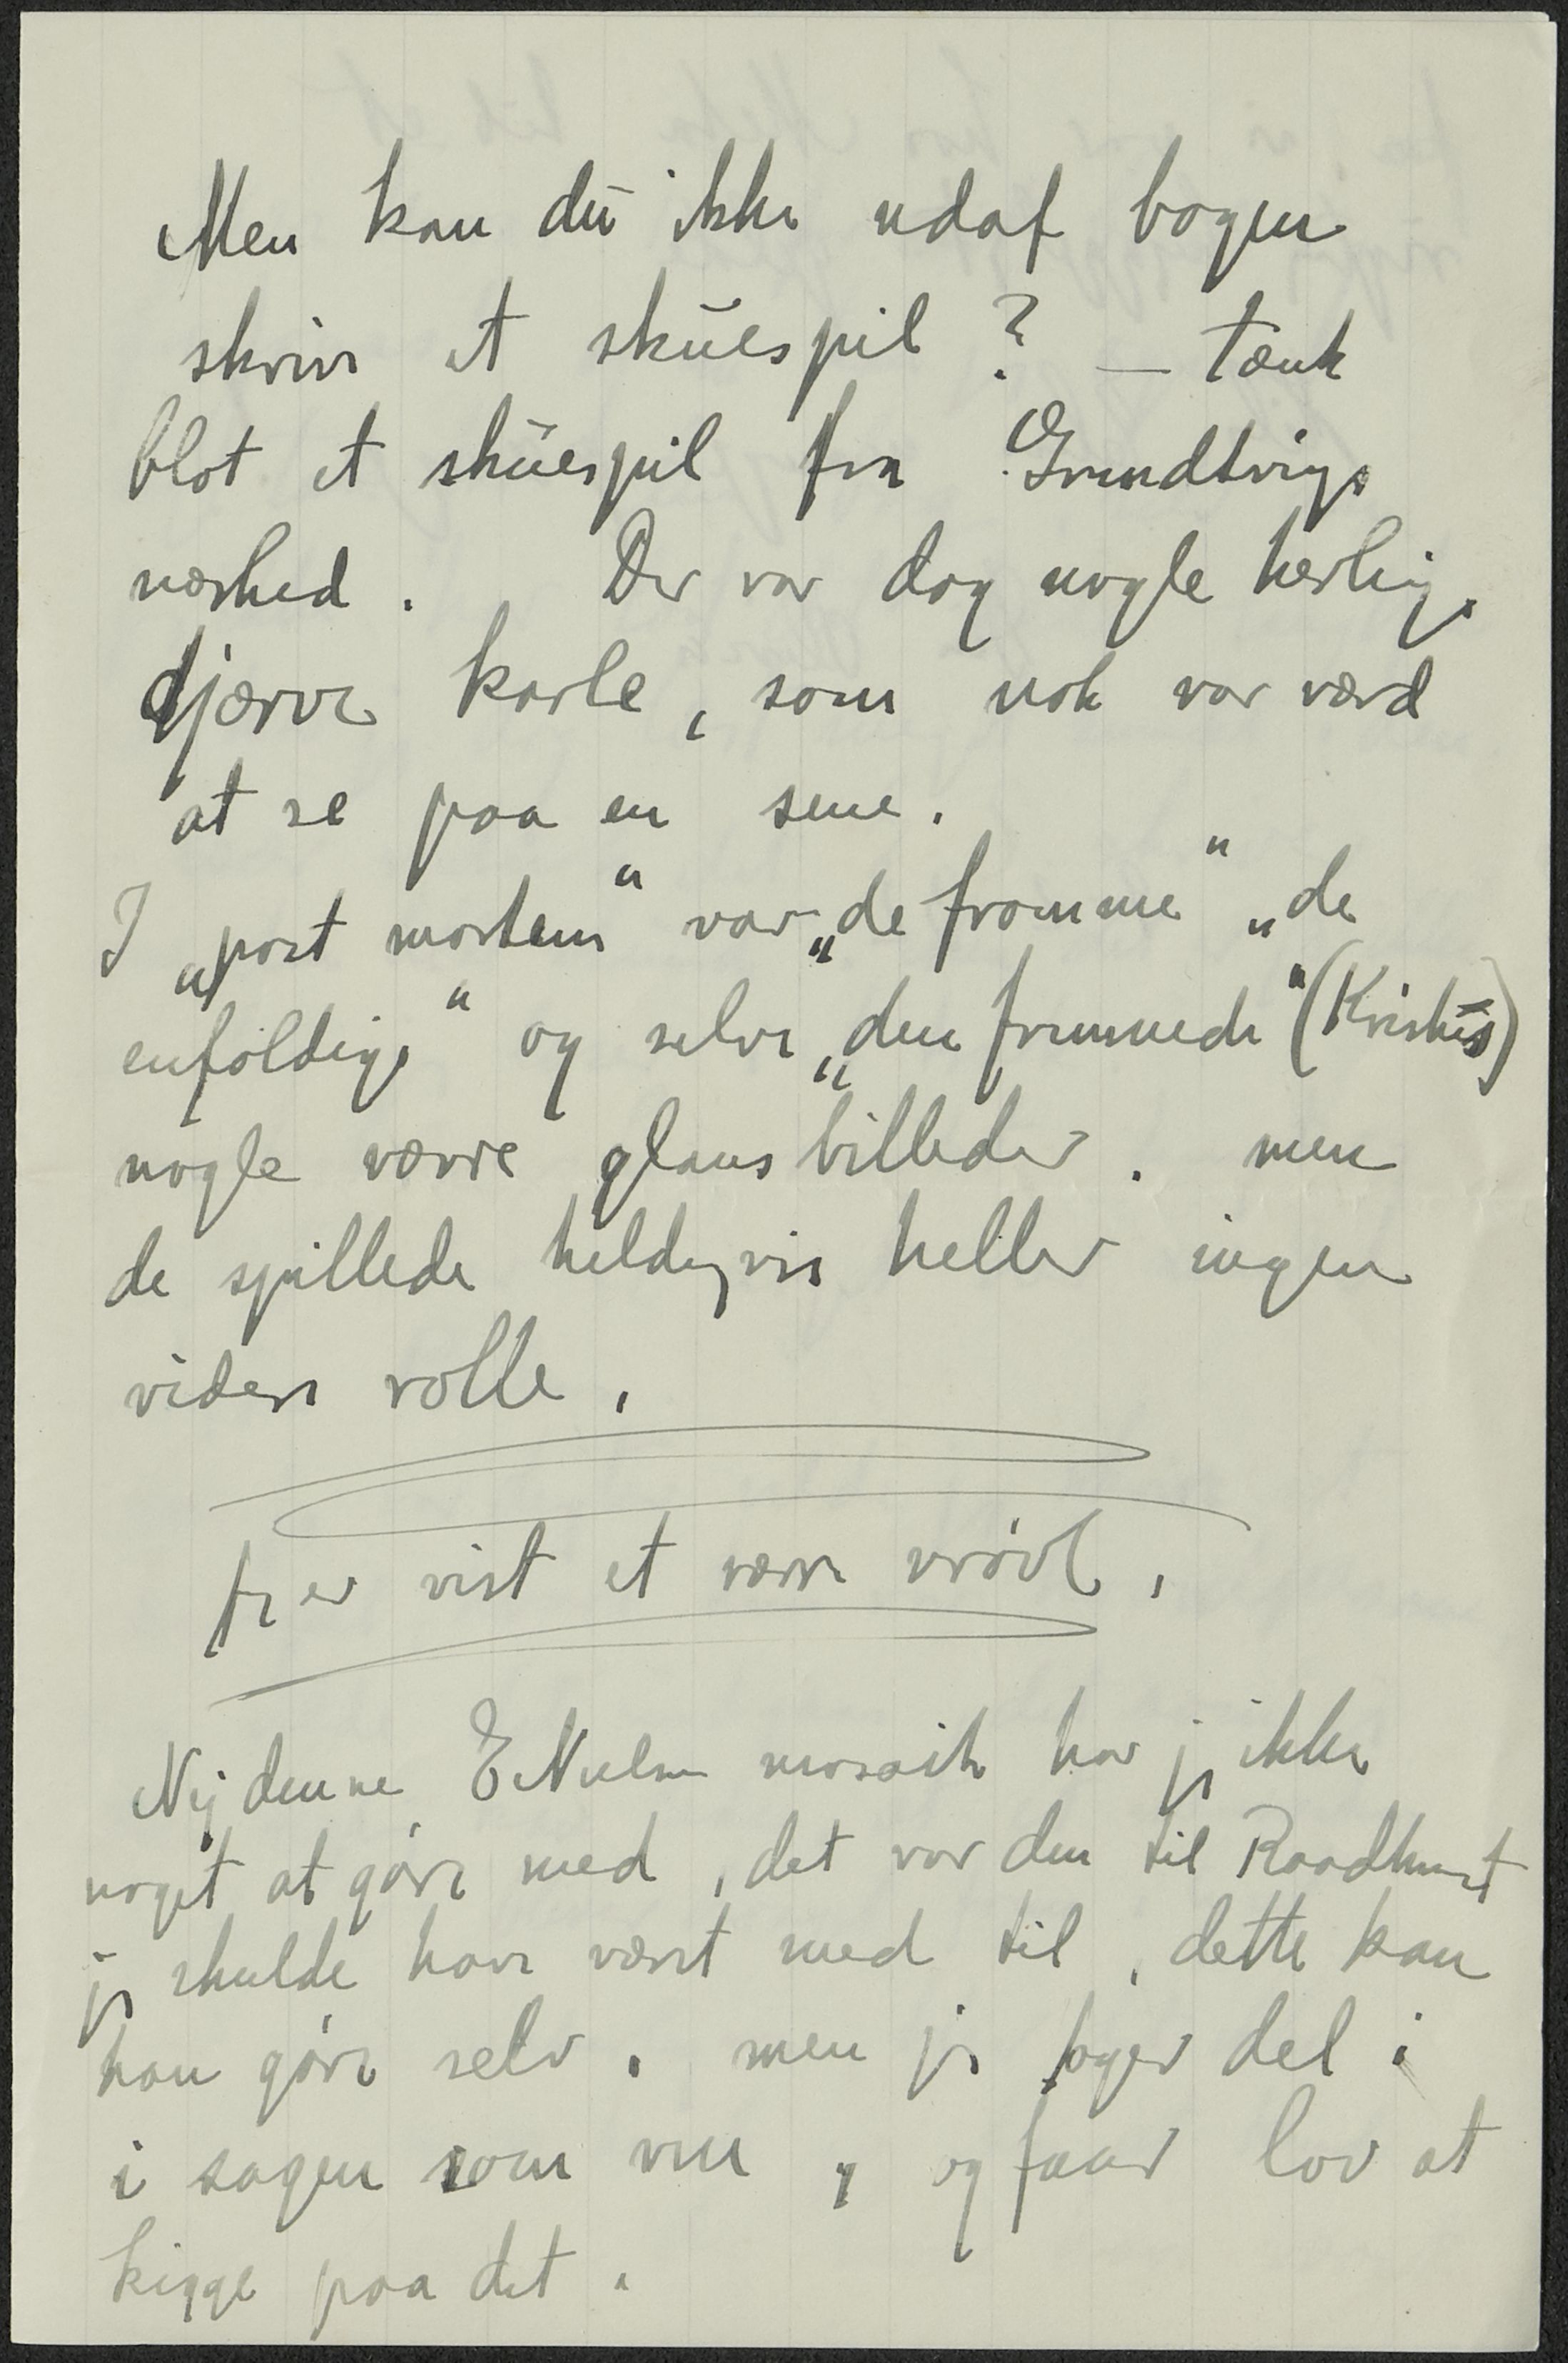 Men kan du ikke udaf bogen
skrive et skuespil? — tænk
blot et skuespil fra Grundtvigs
nærhed. Der var dog nogle herlige
djærve karle, som nok var værd
at se paa en sene.
I „post mortem“ var „de fromme“ „de
enfoldige“ og selve „den fremmede“ (Kristus)
nogle værre glansbilleder. men
de spillede heldigvis heller ingen
videre rolle.
er vist et værre vrøvl.
Nej denne E Nielsen mosaik har jeg ikke
noget at gøre med, det var den til Raadhuset
jeg skulde have været med til, dette kan
han gøre selv. men jeg tager del i
i sagen som ven, og faar lov at
kigge paa det.